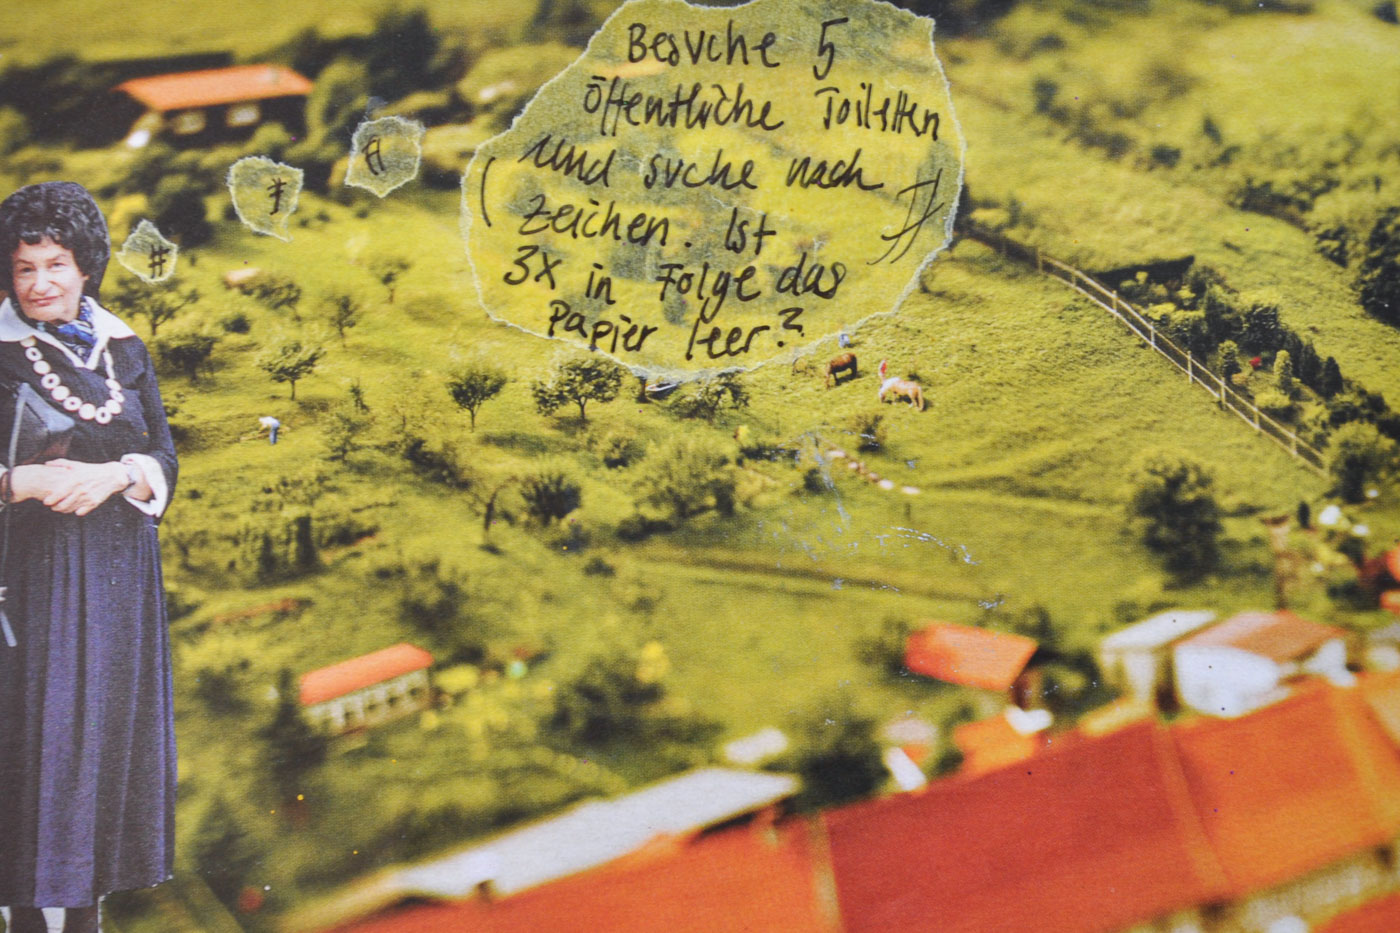 Besuche 5
öffentliche Toiletten
und suche nach
zeichen. Ist
3x in Folge das
Papier leer?
#
#